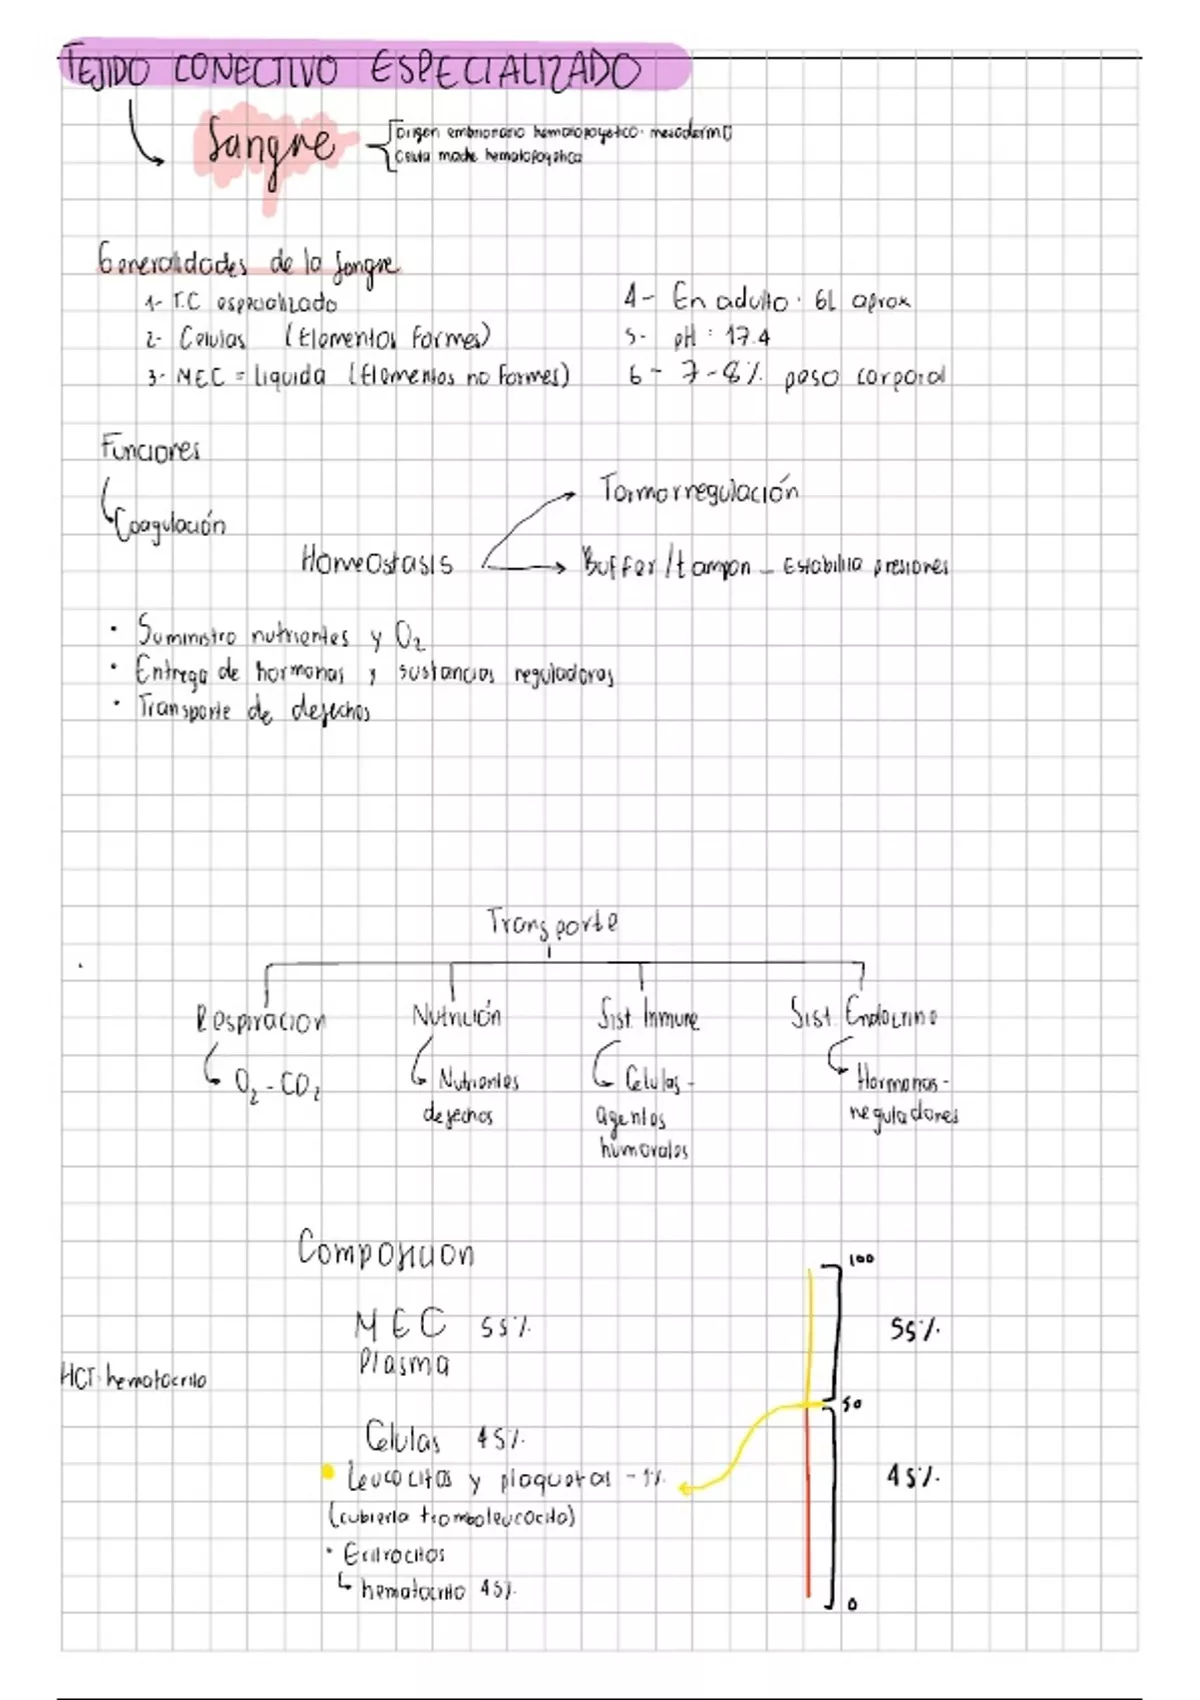 TEJIDO CONECTIVO ESPECIALIZADO
Sangre
Origen embrionario hematopoyetico: mesodermo
Celula madre hematopoyetica
Generalidades de la sangre
1- T.C especializado
2- Celulas (Elementos Formes)
3- MEC = liquida (Elementos no Formes)
4- En adulto: 6L aprox
5- pH: 17.4
6- 7-8% peso corporal
Funciones
Coagulación
Homeostasis
Termorregulación
Buffer/tampon - Estabiliza presiones
• Suministro nutrientes y O2
• Entrega de hormonas y sustancias reguladoras
• Transporte de desechos
Transporte
Respiracion
O2 - CO2
Nutrición
Nutrientes
desechos
Sist. Inmune
Celulas -
agentes
humorales
Sist. Endocrino
Hormonas -
reguladores
Composicion
MEC 55%
Plasma
HCT: hematocrito
Celulas 45%
• Leucocitos y plaquetas - 1%
(cubierta tromboleucocito)
• Eritrocitos
hematocrito 45%
100
55%
50
45%
0